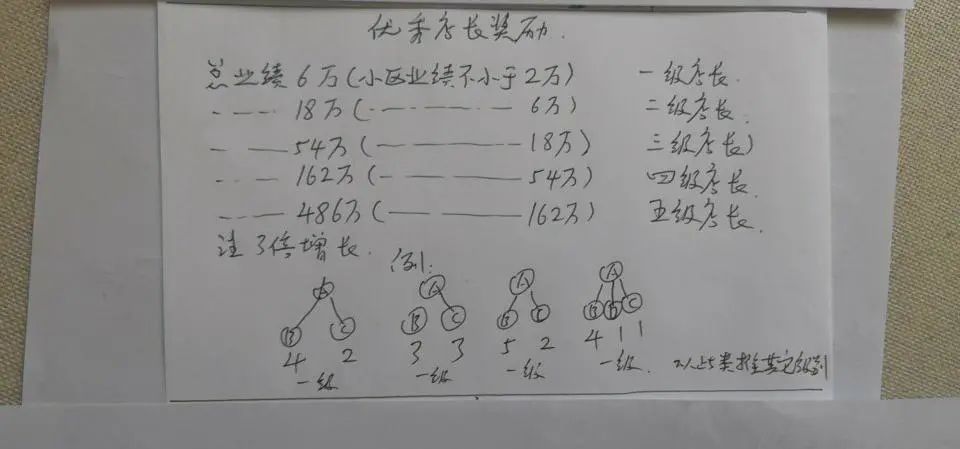 优秀店长奖励.
总业绩6万(小区业绩不小于2万) 一级店长.
-- —— 18万(—— —— 6万) 二级店长.
-- —— 54万(—— —— 18万) 三级店长)
-- —— 162万(—— —— 54万) 四级店长.
-- —— 486万(—— —— 162万) 五级店长.
注3倍增长. 例:
A A A A
B C B C B C B D C
4 2 3 3 5 2 4 1 1
一级 一级 一级 一级. 以此类推其它级别